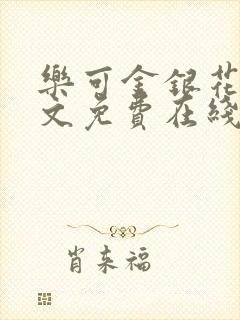 樂可金銀花
文免費在綫
肖来福